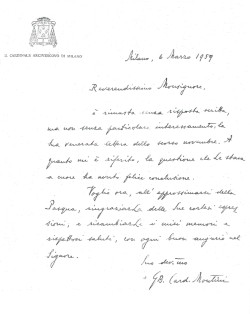 IL CARDINALE ARCIVESCOVO DI MILANO
Milano, 6 Marzo 1959
Reverendissimo Monsignore,
è rimasta senza risposta scritta,
ma non senza particolare interessamento, la
Sua venerata lettera dello scorso novembre. A
quanto mi è riferito, la questione che Le stava
a cuore ha avuto felice conclusione.
Voglio ora, all'approssimarsi della
Pasqua, ringraziarLa delle Sue cortesi espres-
sioni, e ricambiarLe i miei memori e
rispettosi saluti, con ogni buon augurio nel
Signore.
Suo dev.mo
+ GB. Card. Montini